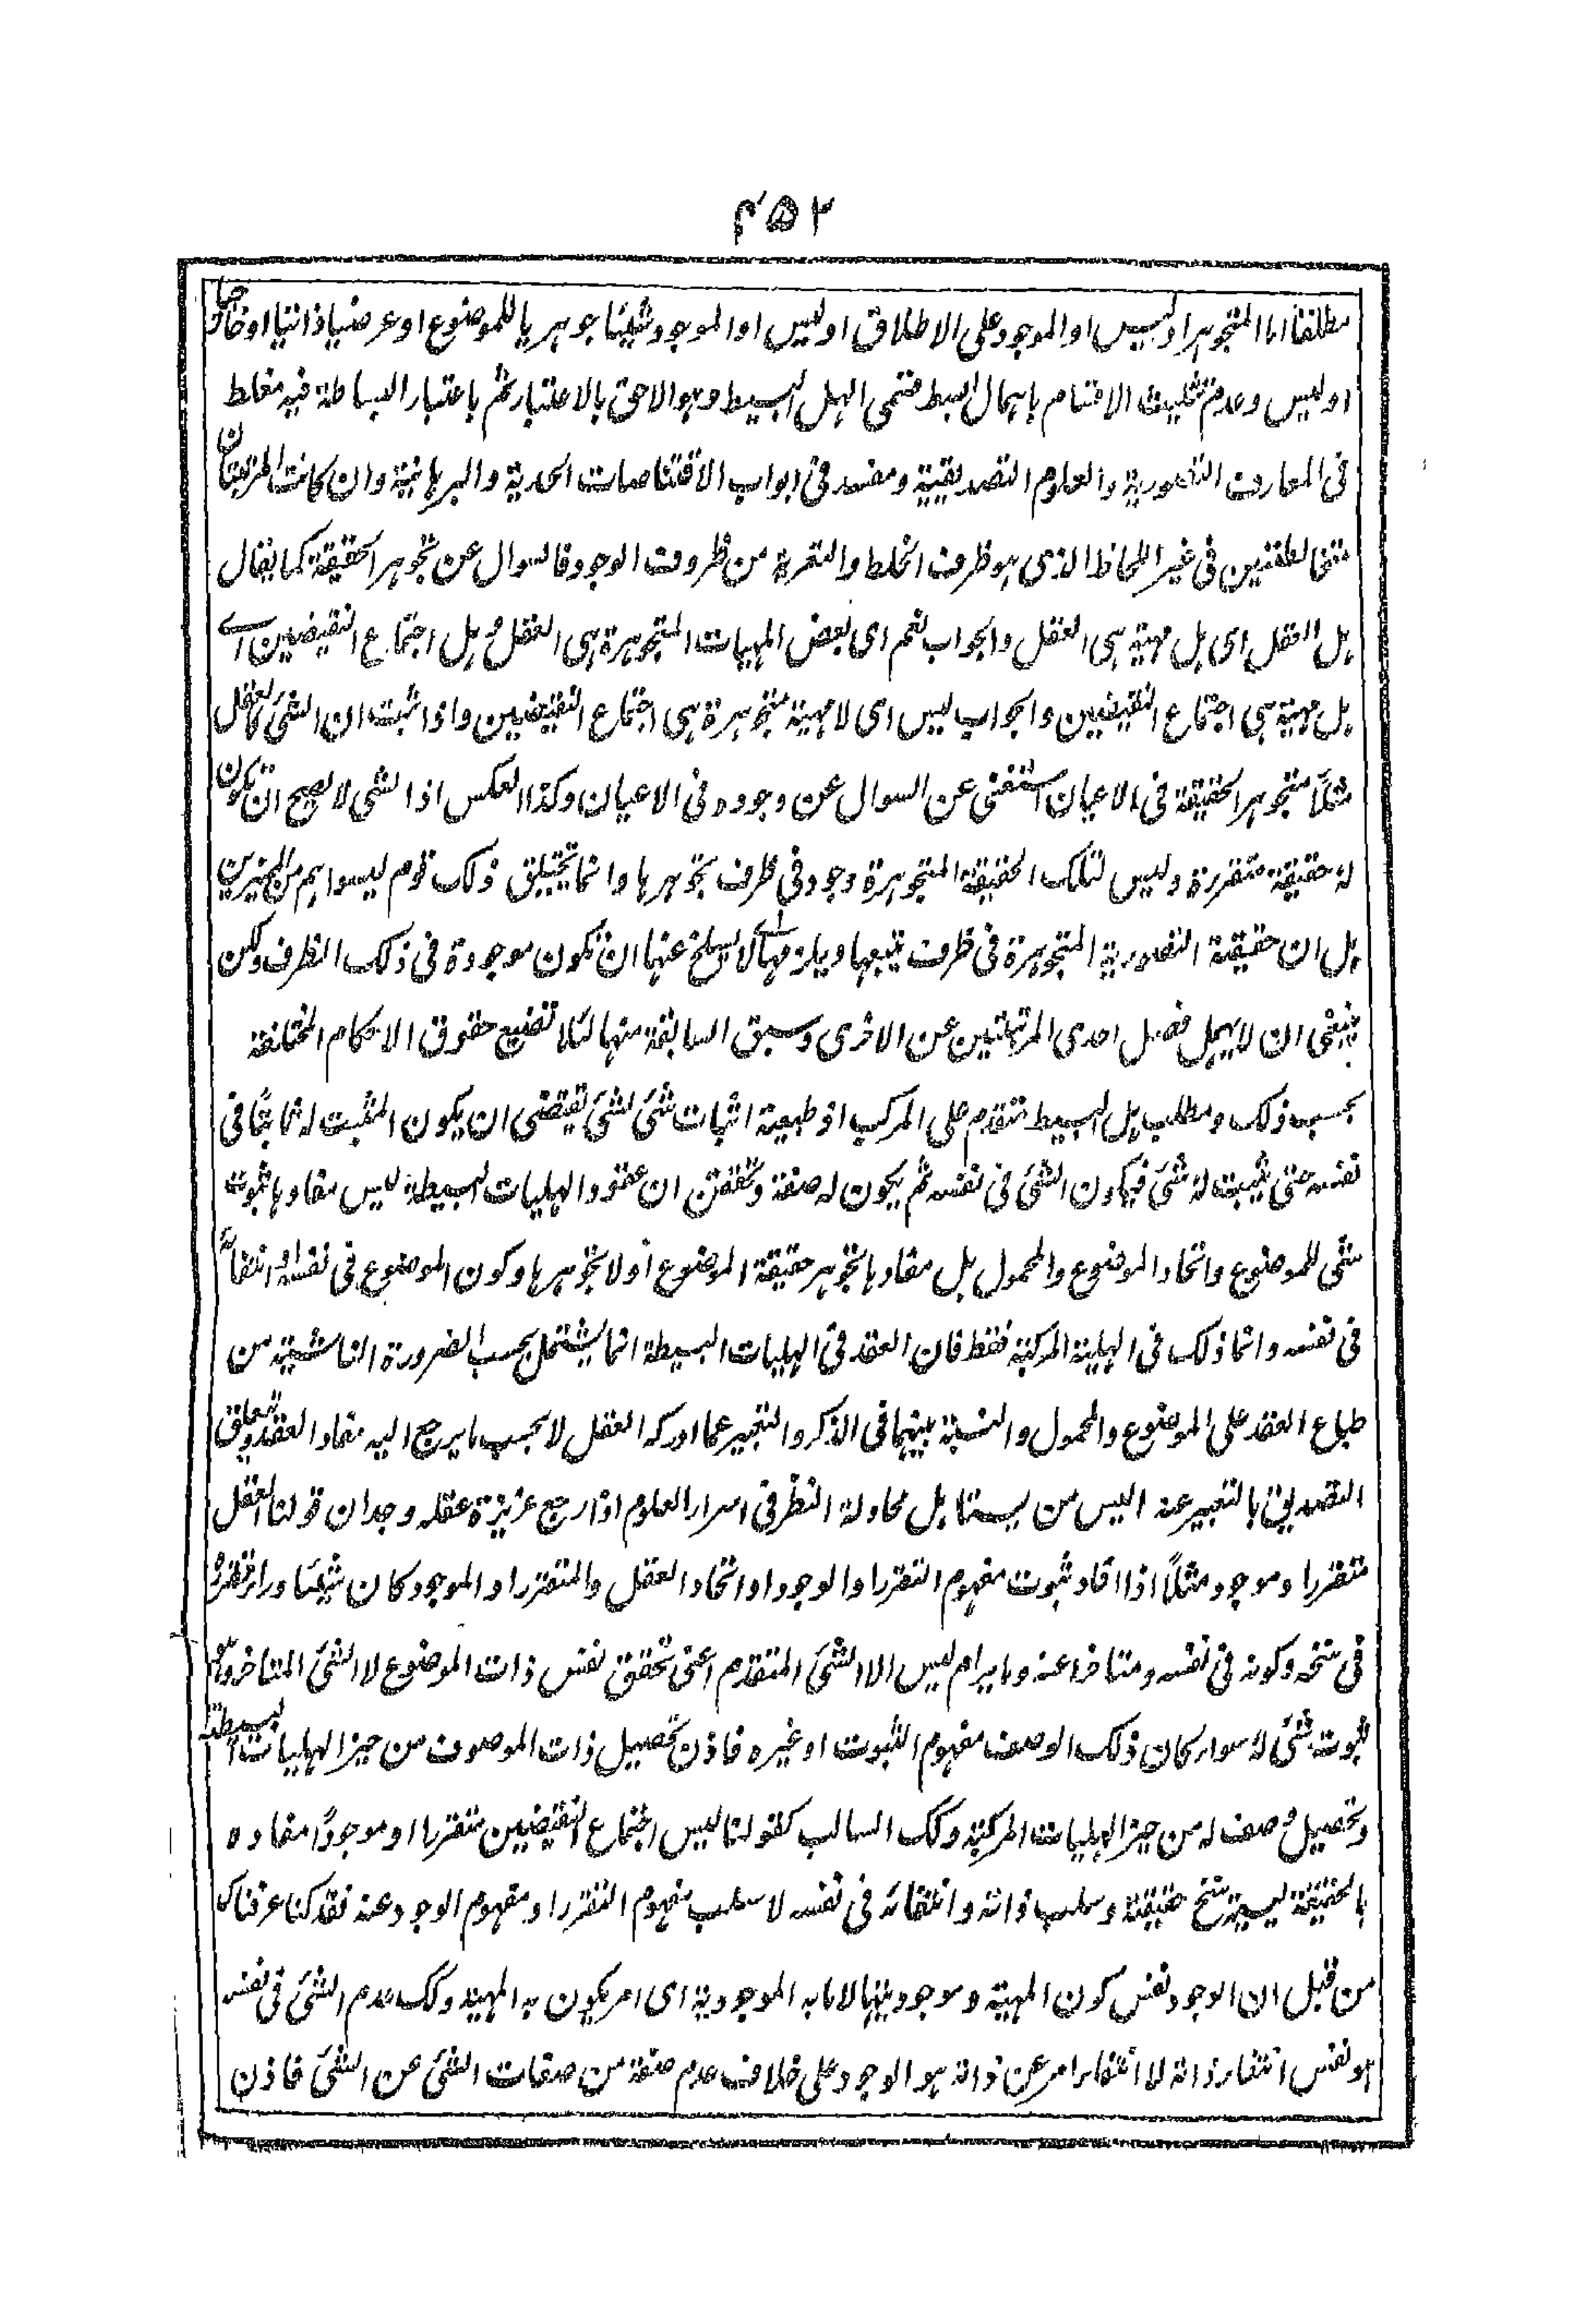 ۴۵۲
مطلقا اما المتجوہر او لیس او الموجود علی الاطلاق او لیس او الموجود شیئا جوہریا للموضوع او عرضیا ذاتیا او خاصا
او لیس وعدم تثلیث الاقسام باہمال ابسط قسمی الہل البسیط وہو الاحق بالاعتبار ثم باعتبار البساطۃ فیہ مغلط
فی المعارف التصوریۃ والعلوم التصدیقیۃ ومفسد فی ابواب الاقتناصات الحدیۃ والبرہانیۃ وان کانت المرتبتان
متخالطتین فی غیر اللحاظ الذی ہو ظرف الخلط والتعریۃ من ظروف الوجود فالسوال عن تجوہر الحقیقۃ کما یقال
ہل العقل ای ہل مہیۃ ہی العقل والجواب نعم ای بعض المہیات المتجوہرۃ ہی العقل وہل اجتماع النقیضین اے
ہل مہیۃ ہی اجتماع النقیضین والجواب لیس ای لا مہیۃ متجوہرۃ ہی اجتماع النقیضین واذا ثبت ان الشئ کالعقل
مثلاً متجوہر الحقیقۃ فی الاعیان استغنی عن السوال عن وجودہ فی الاعیان وکذا العکس اذ الشئ لا یصح ان تکون
لہ حقیقۃ متقررۃ ولیس لتلک الحقیقۃ المتجوہرۃ وجود فی ظرف تجوہرہا وانما یختلق ذلک قوم لیسوا ہم من المیزین
بل ان حقیقۃ التصوریۃ المتجوہرۃ فی ظرف یتبعہا ویلزمہا اے لا ینسلخ عنہا ان تکون موجودۃ فی ذلک الظرف ولکن
ینبغی ان لا یہمل فصل احدی المرتبتین عن الاخری وسبق السابقۃ منہما لئلا تضیع حقوق الاحکام المختلفۃ
بحسب ذلک ومطلب ہل البسیط متقدم علی المرکب اذ طبیعۃ اثبات شئ لشئ تقتضی ان یکون المثبت لہ ثابتًا فی
نفسہ حتی یثبت لہ شئ فیکون الشئ فی نفسہ ثم یکون لہ صفۃ وتحققن ان عقود الہلیات البسیطۃ لیس مفادہا ثبوت
شئ للموضوع واتحاد الموضوع والمحمول بل مفادہا تجوہر حقیقۃ الموضوع او لا تجوہرہا وکون الموضوع فی نفسہ او انتفائہ
فی نفسہ وانما ذلک فی الہلیۃ المرکبۃ فقط فان العقد فی الہلیات البسیطۃ انما یشتمل بحسب الضرورۃ الناشئیۃ من
طباع العقد علی الموضوع والمحمول والنسبۃ بینہما فی الذکر والتعبیر عما ادرکہ العقل لا بحسب ما یرجع الیہ مفاد العقد وتعلق
التصدیق بالتعبیر عنہ الیس من یستاہل محاولۃ النظر فی اسرار العلوم اذا رجع غریزۃ عقلہ وجدان قولنا العقل
متقرر او موجود مثلاً اذا افاد ثبوت مفہوم التقرر او الوجود او اتحاد العقل والمتقرر او الموجود کان شیئا وراء تقررہ
فی سنخہ وکونہ فی نفسہ ومتاخرا عنہ وما یرام لیس الا الشئ المتقدم اعنی تحقق نفس ذات الموضوع لا الشئ المتاخر وہو
ثبوت شئ لہ سواء کان ذلک الوصف مفہوم الثبوت او غیرہ فاذن تحصیل ذات الموصوف من حیز الہلیات البسیطۃ
وتحصیل وصف لہ من حیز الہلیات المرکبۃ وکک السالب کقولنا لیس اجتماع النقیضین متقررا او موجودًا مفادہ
بالحقیقۃ لیسیۃ سنخ حقیقۃ وسلب ذاتہ وانتفائہ فی نفسہ لا سلب مفہوم التقرر او مفہوم الوجود عنہ فقد کنا عرفناک
من قبل ان الوجود نفس کون المہیۃ وموجودیتہا لا ما بہ الموجودیۃ ای امر یکون بہ المہیۃ وکک عدم الشئ فی نفسہ
ہو نفس انتفاء ذاتہ لا انتفاء امر عن ذاتہ ہو الوجود علی خلاف عدم صفۃ من صفات الشئ عن الشئ فاذن